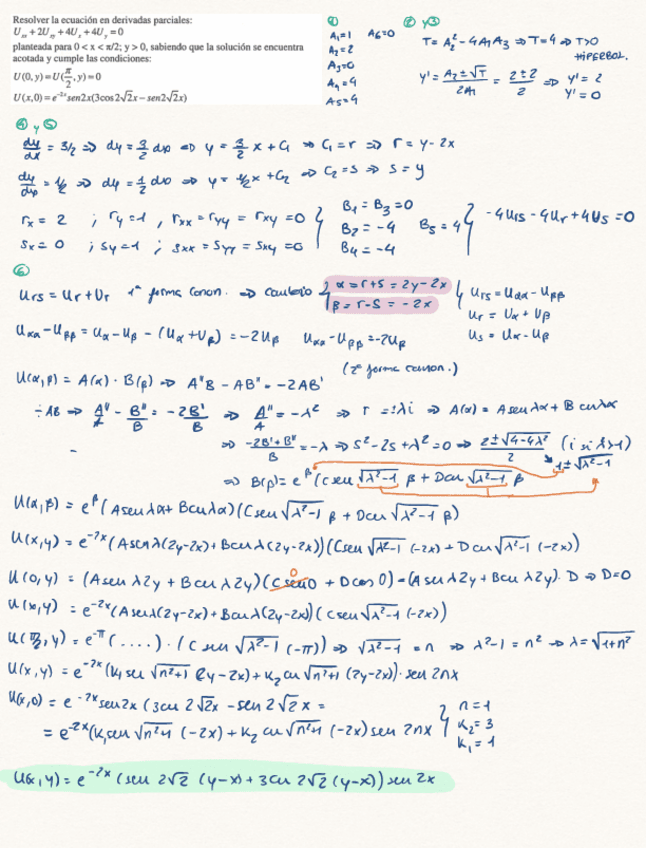 Resolver la ecuación en derivadas parciales:
Uₓₓ + 2Uₓᵧ + 4Uₓ + 4Uᵧ = 0
planteada para 0 < x < π/2; y > 0, sabiendo que la solución se encuentra
acotada y cumple las condiciones:
U(0, y) = U(π/2, y) = 0
U(x,0) = e^(-2x) sen2x(3cos2√2x − sen2√2x)
① A₁=1 A₆=0
A₂=2
A₃=0
A₄=4
A₅=4
② y ③
T = A₂² - 4A₁A₃ ⇒ T=4 ⇒ T>0
HIPERBOL.
y' = (A₂±√T)/2A₁ = (2±2)/2 ⇒ y' = 2
y' = 0
④ y ⑤
dy/dx = 3/2 ⇒ dy = 3/2 dx ⇒ y = 3/2 x + C₁ ⇒ C₁ = r ⇒ r = y-2x
dy/dx = 1/2 ⇒ dy = 1/2 dx ⇒ y = 1/2 x + C₂ ⇒ C₂ = s ⇒ s = y
rx = 2 ; ry = 1 , rxx = ryy = rxy = 0
sx = 0 ; sy = 1 ; sxx = syy = sxy = 0
B₁ = B₃ = 0
B₂ = -4 B₅ = 4
B₄ = -4
-4Urs - 4Ur + 4Us = 0
⑥
Urs = Ur + Ur 1ª forma canon. ⇒ cambio
α = r+s = 2y-2x
β = r-s = -2x
Urs = Uαα - Uββ
Ur = Uα + Uβ
Us = Uα - Uβ
Uαα - Uββ = Uα - Uβ - (Uα + Uβ) = -2Uβ Uαα - Uββ = -2Uβ
(2ª forma canon.)
U(α,β) = A(α) · B(β) ⇒ A''B - AB'' = -2AB'
÷AB ⇒ A''/A - B''/B = -2B'/B ⇒ A''/A = -λ² ⇒ r = ±λi ⇒ A(α) = A sen λα + B cos λα
⇒ (-2B'+B'')/B = -λ ⇒ s² - 2s + λ² = 0 ⇒ (2±√(4-4λ²))/2 (i si λ>1)
1±√(λ²-1)
⇒ B(β) = e^β (C sen √(λ²-1) β + D cos √(λ²-1) β
U(α,β) = e^β (A sen λα + B cos λα)(C sen √(λ²-1) β + D cos √(λ²-1) β)
U(x,y) = e^(-2x) (A sen λ(2y-2x) + B cos λ(2y-2x))(C sen √(λ²-1) (-2x) + D cos √(λ²-1) (-2x))
0
U(0,y) = (A sen λ2y + B cos λ2y)(C sen 0 + D cos 0) = (A sen λ2y + B cos λ2y) · D ⇒ D=0
U(x,y) = e^(-2x) (A sen λ(2y-2x) + B cos λ(2y-2x))(C sen √(λ²-1) (-2x))
U(π/2,y) = e^(-π) (....) · (C sen √(λ²-1) (-π)) ⇒ √(λ²-1) = n ⇒ λ²-1 = n² ⇒ λ = √(1+n²)
U(x,y) = e^(-2x) (K₁ sen √(n²+1) (2y-2x) + K₂ cos √(n²+1) (2y-2x)) · sen 2nx
U(x,0) = e^(-2x) sen 2x (3 cos 2√2x - sen 2√2 x =
= e^(-2x) (K₁ sen √(n²+1) (-2x) + K₂ cos √(n²+1) (-2x) sen 2nx
n = 1
K₂ = 3
K₁ = 1
U(x,y) = e^(-2x) (sen 2√2 (y-x) + 3 cos 2√2 (y-x)) sen 2x